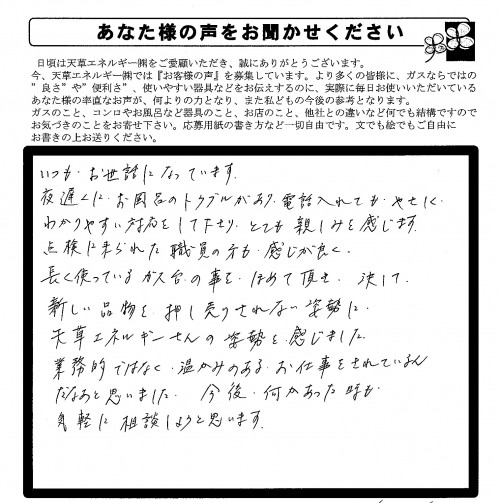 あなた様の声をお聞かせください
日頃は天草エネルギー㈱をご愛顧いただき、誠にありがとうございます。
今、天草エネルギー㈱では『お客様の声』を募集しています。より多くの皆様に、ガスならではの
”良さ”や”便利さ”、使いやすい器具などをお伝えするのに、実際に毎日お使いいただいている
あなた様の率直なお声が、何よりの力となり、また私どもの今後の参考となります。
ガスのこと、コンロやお風呂など器具のこと、お店のこと、他社との違いなど何でも結構ですので
お気づきのことをお寄せ下さい。応募用紙の書き方など一切自由です。文でも絵でもご自由に
お書きの上お送りください。
いつも お世話になっています。
夜遅くに お風呂のトラブルがあり、電話入れても やさしく
わかりやすい対応をして下さり、とても 親しみを感じます。
点検に来られた 職員の方も 感じが良く、
長く使っている ガス台 の事を ほめて頂き、決して
新しい品物を 押し売りされない 姿勢に、
天草エネルギーさんの 姿勢を 感じました。
業務的ではなく、温かみのある お仕事をされているん
だなあと思いました。 今後、何かあった時も
気軽に 相談しようと思います。